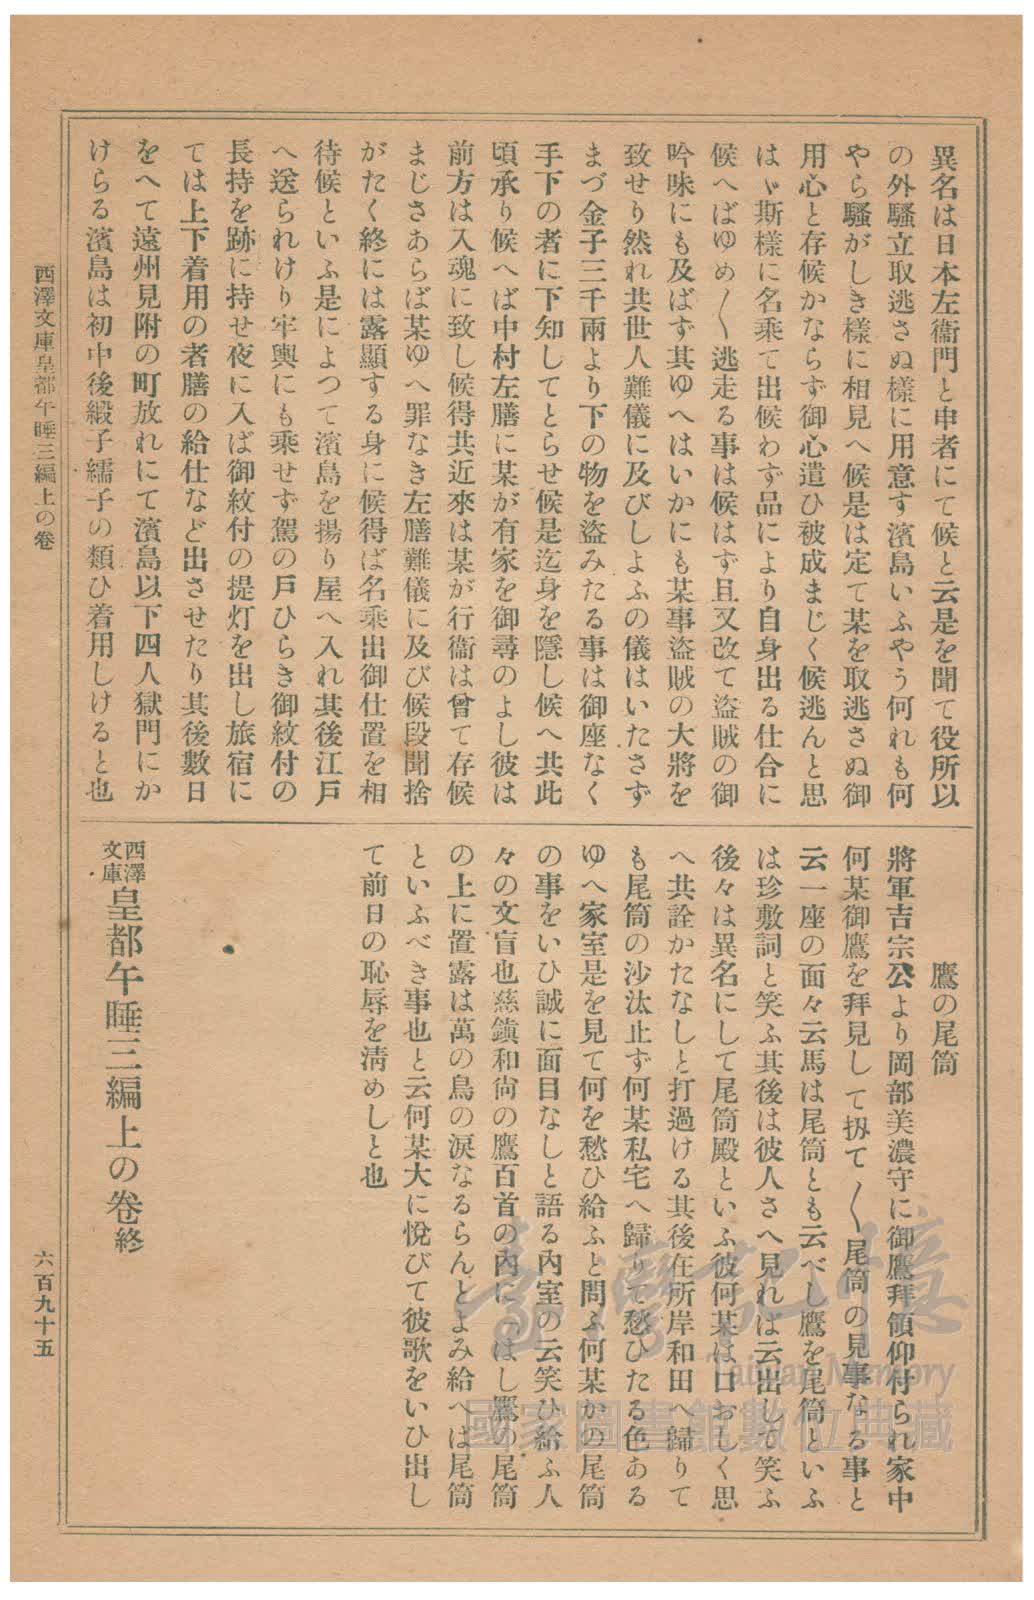 異名は日本左衞門と申者にて候と云是を聞て役所以
の外騷立取逃さぬ樣に用意す濱島いふやう何れも何
やら騷がしき樣に相見へ候是は定て某を取逃さぬ御
用心と存候かならず御心遣ひ被成まじく候逃んと思
はゞ斯樣に名乘て出候わず品により自身出る仕合に
候へばゆめ〱逃走る事は候はず且又改て盜賊の御
吟味にも及ばず其ゆへはいかにも某事盜賊の大將を
致せり然れ共世人難儀に及びしよふの儀はいたさず
まづ金子三千兩より下の物を盜みたる事は御座なく
手下の者に下知してとらせ候是迄身を隱し候へ共此
頃承り候へば中村左膳に某が有家を御尋のよし彼は
前方は入魂に致し候得共近來は某が行衞は曾て存候
まじさあらば某ゆへ罪なき左膳難儀に及び候段聞捨
がたく終には露顯する身に候得ば名乘出御仕置を相
待候といふ是によつて濱島を揚り屋へ入れ其後江戸
へ送られけり牢輿にも乘せず駕の戸ひらき御紋付の
長持を跡に持せ夜に入ば御紋付の提灯を出し旅宿に
ては上下着用の者膳の給仕など出させたり其後數日
をへて遠州見附の町放れにて濱島以下四人獄門にか
けらる濱島は初中後緞子繻子の類ひ着用しけると也
鷹の尾筒
將軍吉宗公より岡部美濃守に御鷹拜領仰付られ家中
何某御鷹を拜見して扨て〱尾筒の見事なる事と
云一座の面々云馬は尾筒とも云べし鷹を尾筒といふ
は珍敷詞と笑ふ其後は彼人さへ見れば云出して笑ふ
後々は異名にして尾筒殿といふ彼何某は口おしく思
へ共詮かたなしと打過ける其後在所岸和田へ歸りて
も尾筒の沙汰止ず何某私宅へ歸りて愁ひたる色ある
ゆへ家室是を見て何を愁ひ給ふと問ふ何某かの尾筒
の事をいひ誠に面目なしと語る內室の云笑ひ給ふ人
々の文盲也慈鎭和尙の鷹百首の內に「はし鷹の尾筒
の上に置露は萬の鳥の淚なるらんとよみ給へは尾筒
といふべき事也と云何某大に悅びて彼歌をいひ出し
て前日の恥辱を淸めしと也
西澤文庫皇都午睡三編上の卷終
西澤文庫皇都午睡三編上の卷
六百九十五
臺灣記憶
Taiwan Memory
國家圖書館數位典藏